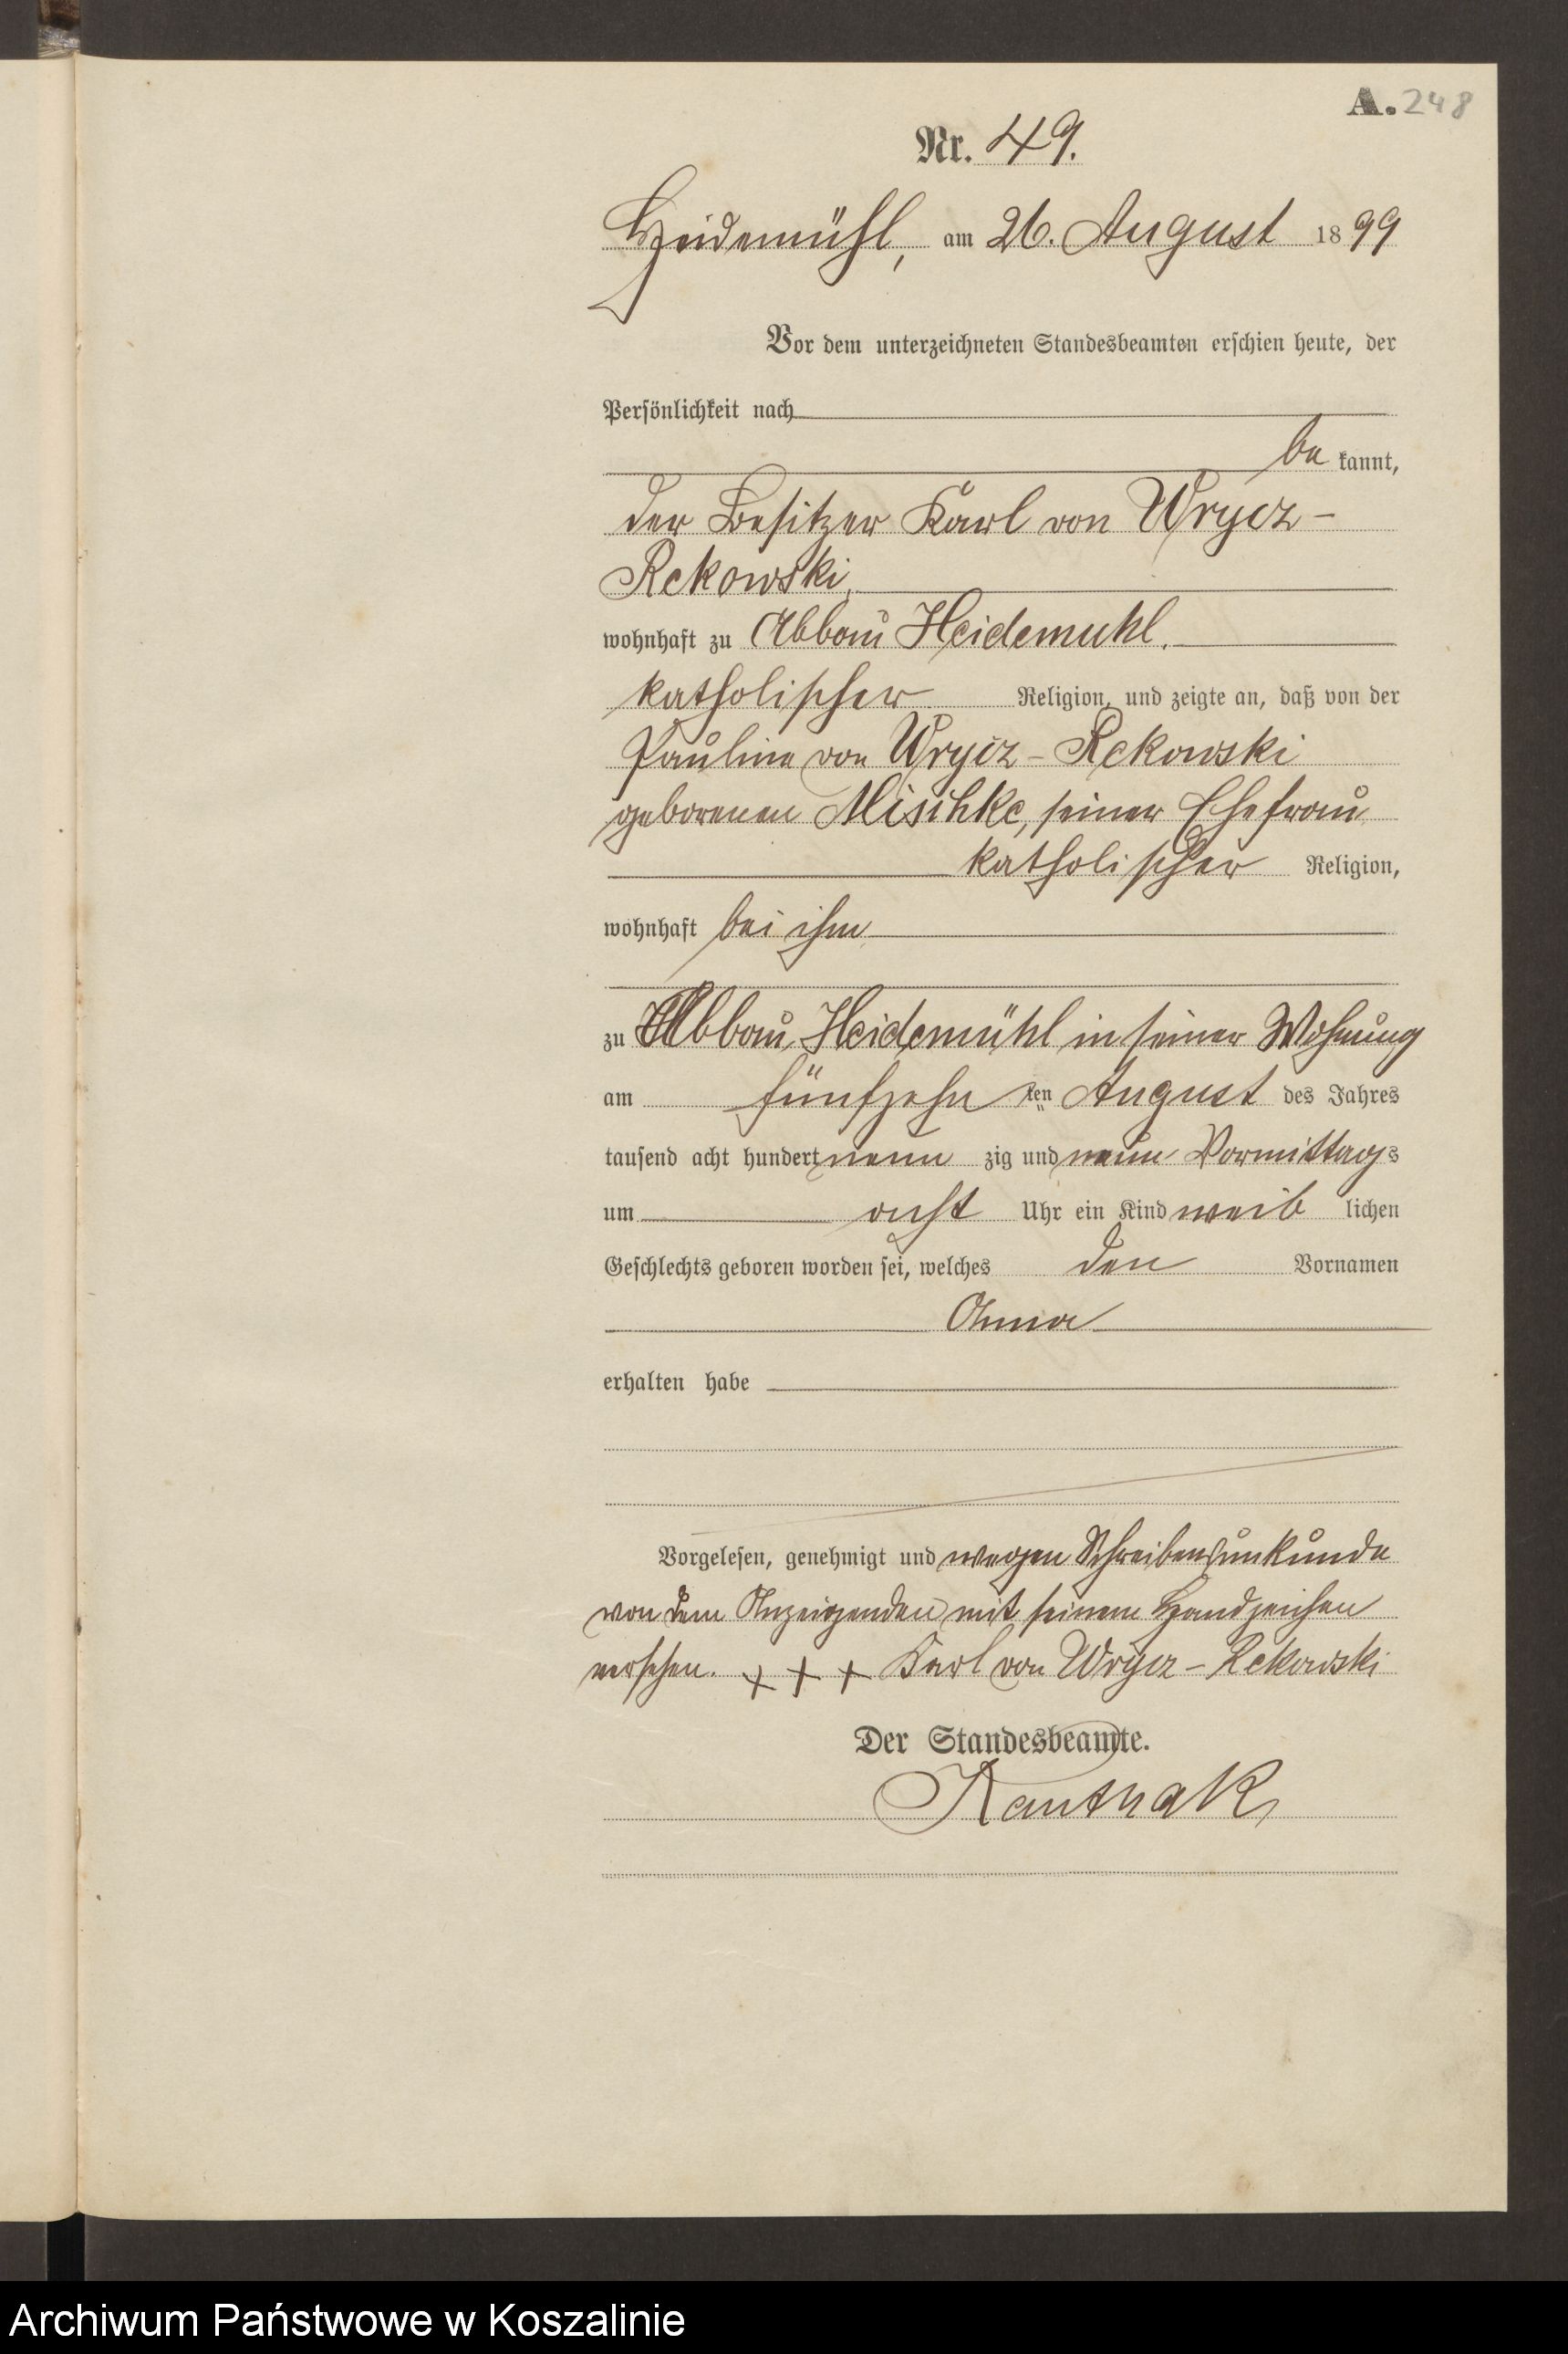 A. 248
Nr. 49.
Heidemühl, am 26. August 1899
Vor dem unterzeichneten Standesbeamten erschien heute, der
Persönlichkeit nach
be kannt,
der Besitzer Karl von Wrycz-
Rekowski,
wohnhaft zu Abbau Heidemuhl.
katholischer Religion, und zeigte an, daß von der
Pauline von Wrycz-Rekowski
geborenen Mischke, seiner Ehefrau
katholischer Religion,
wohnhaft bei ihm
zu Abbau Heidemühl in seiner Wohnung
am fünfzehn ten August des Jahres
tausend acht hundert neun zig und neun Vormittags
um acht Uhr ein Kind weib lichen
Geschlechts geboren worden sei, welches den Vornamen
Anna
erhalten habe
Vorgelesen, genehmigt und wegen Schreibensunkunde
von dem Anzeigenden mit seinem Handzeichen
versehen. + + + Karl von Wrycz-Rekowski
Der Standesbeamte.
Kanthak
Archiwum Państwowe w Koszalinie